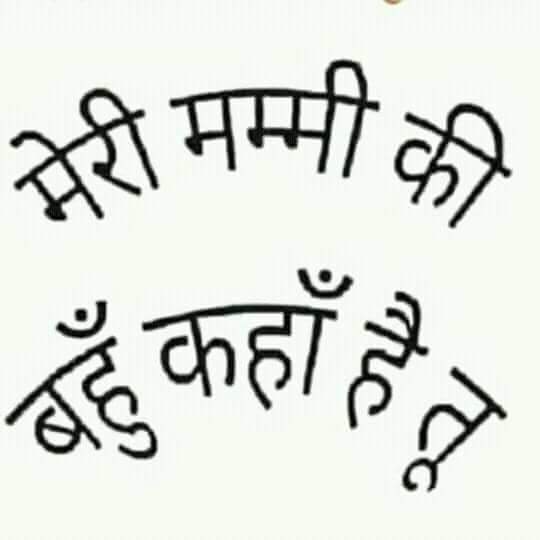 मेरी मम्मी की
बहुँ कहाँ है तू